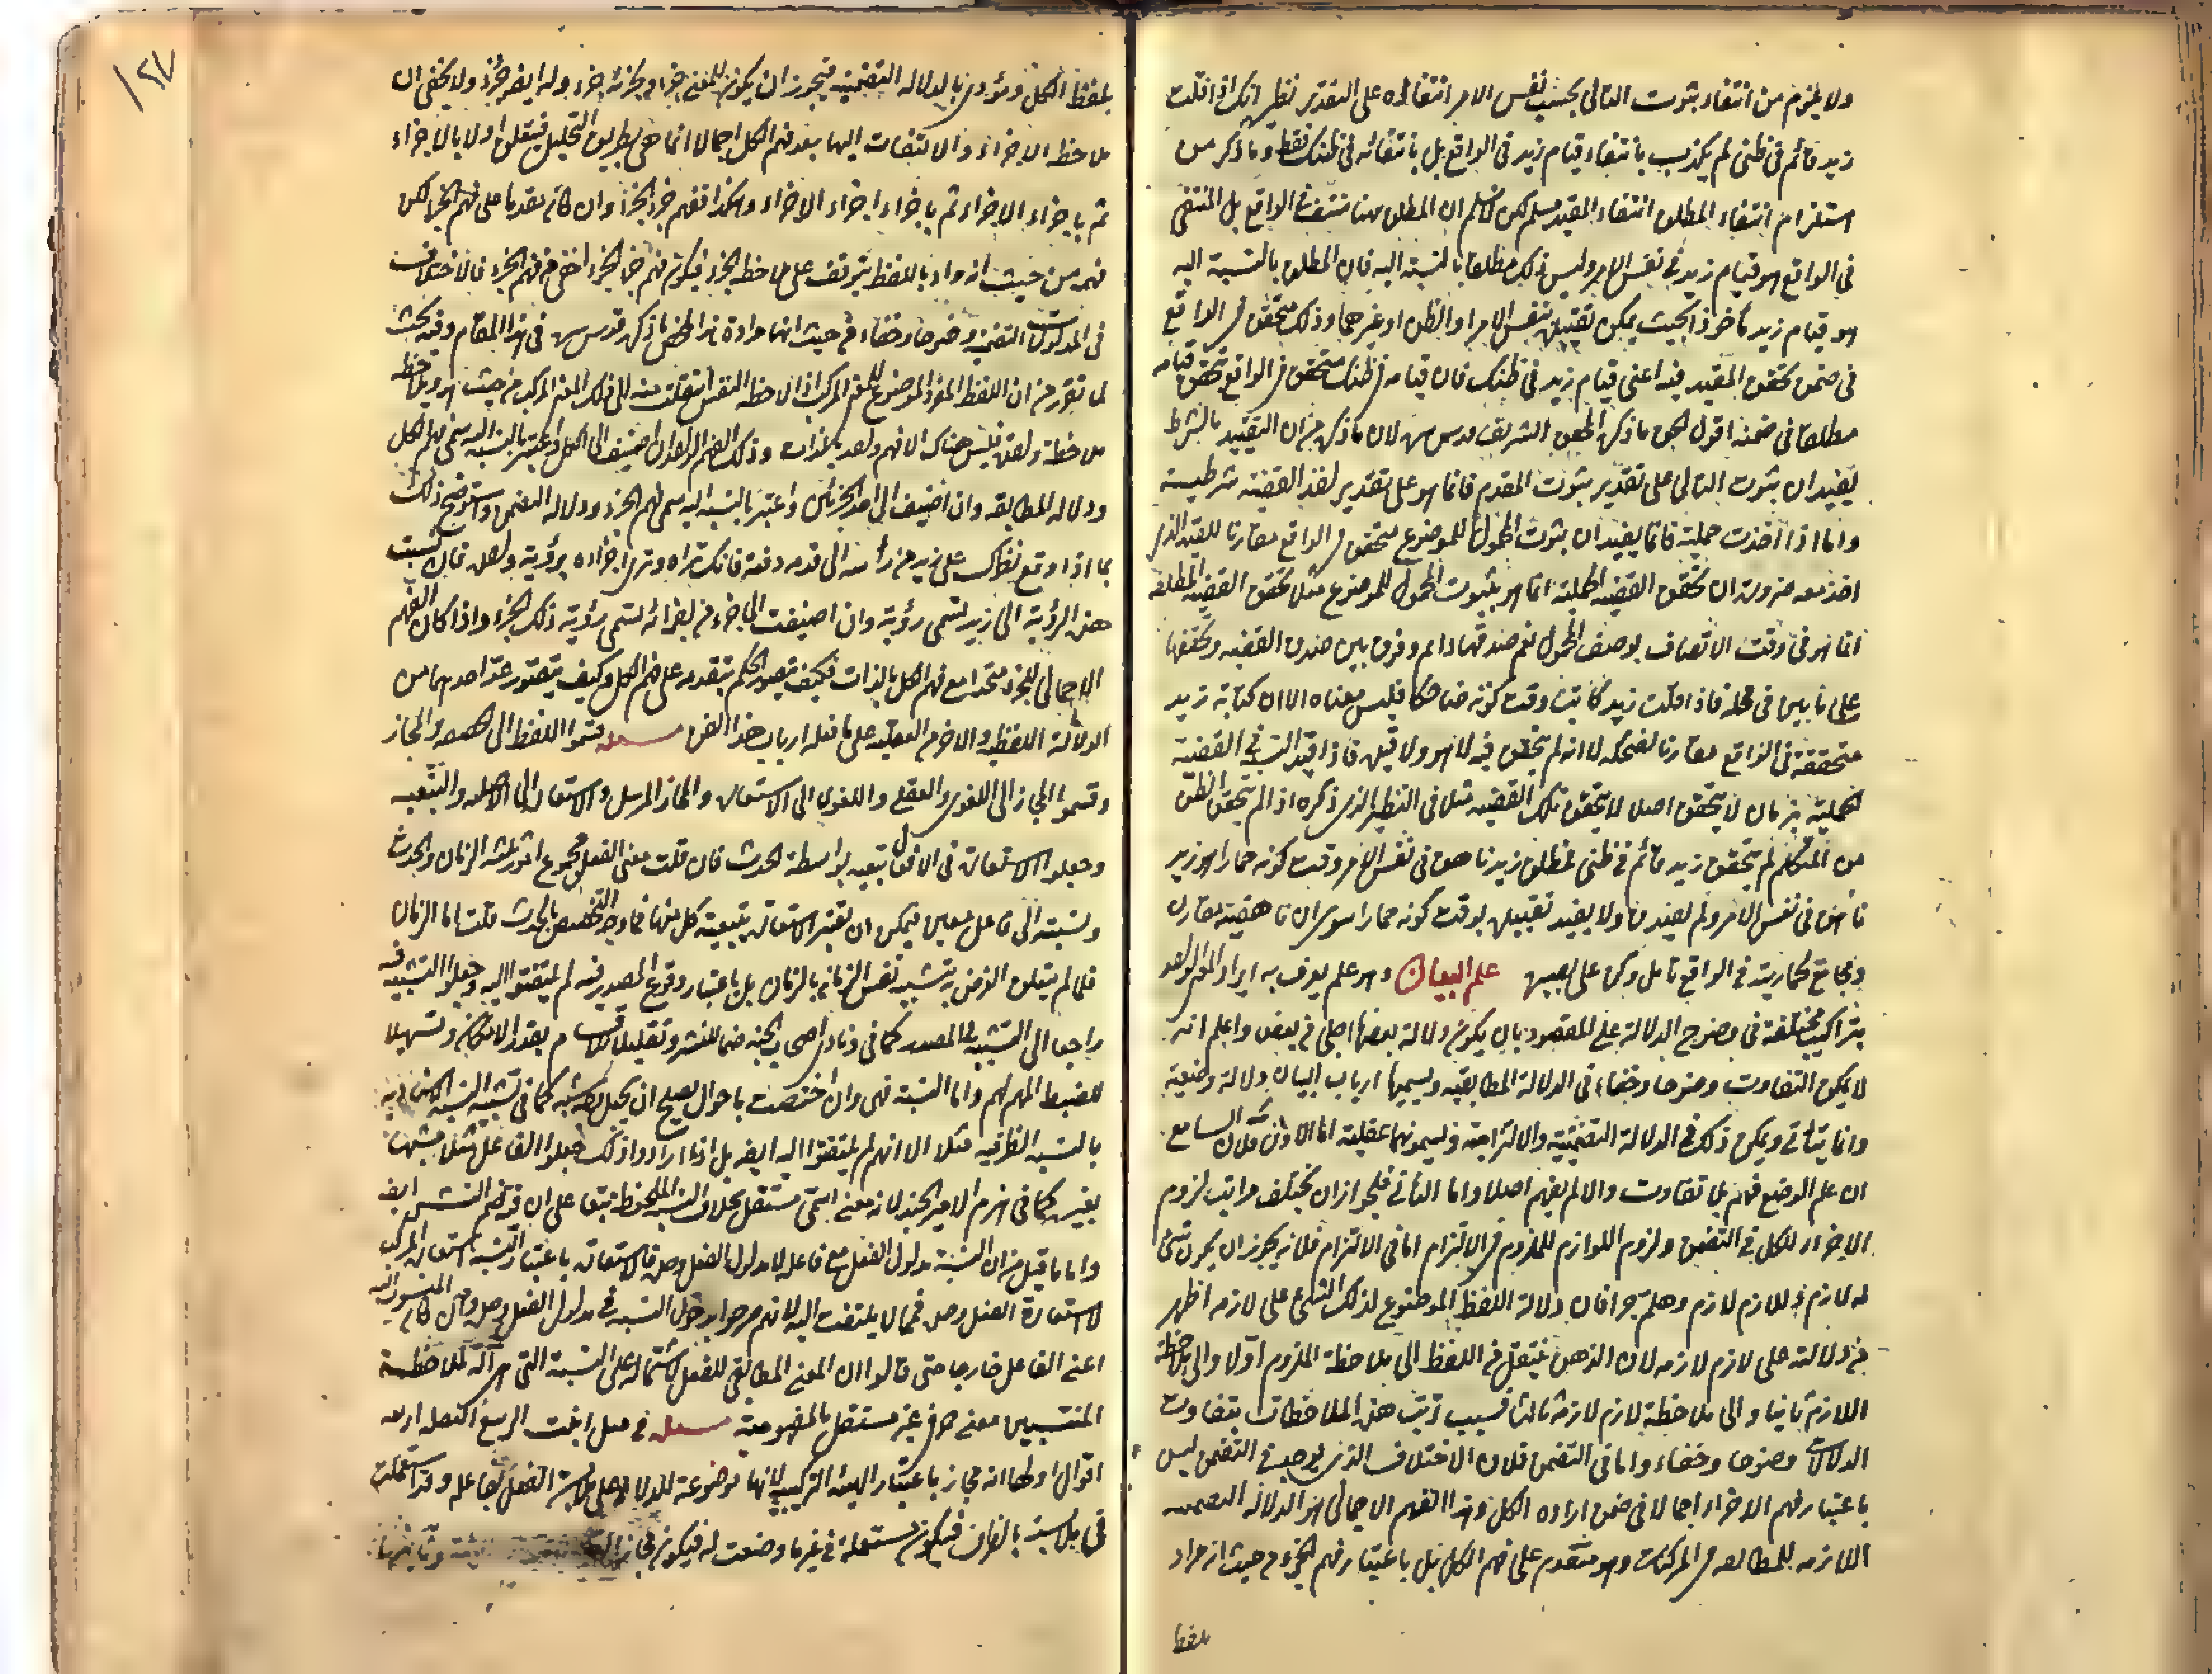 ولا يلزم من انتفاء ثبوت التالى بحسب نفس الامر انتفاؤه على التقدير نظيره انك اذا قلت
زيد قائم فى ظنى لم يكذب بانتفاء قيام زيد فى الواقع بل بانتفائه فى ظنك فقط وما ذكر من
استلزام انتفاء المطلق انتفاء المقيد مسلم لكن لا نسلم ان المطلق ههنا منتف فى الواقع بل المنتفى
فى الواقع هو قيام زيد فى نفس الامر وليس ذلك مطلقا بالنسبة اليه فان المطلق بالنسبة اليه
هو قيام زيد مأخوذا بحيث يمكن تقييده بنفس الامر او الظن او غيرهما وذلك متحقق فى الواقع
فى ضمن تحقق المقيد فيه اعنى قيام زيد فى ظنك فان قيامه فى ظنك متحقق فى الواقع تحقق قيامه
مطلقا فى ضمنه اقول الحق ما ذكره المحقق الشريف قدس سره لان ما ذكره من ان التقييد بالشرط
يفيد ان ثبوت التالى على تقدير ثبوت المقدم فانما هو على تقدير القضية شرطية
واما اذا اخذت حملية فانما يفيد ان ثبوت المحمول للموضوع متحقق فى الواقع مقارنا للقيد الذى
اخذ معه ضرورة ان تحقق القضية الحملية انما هو بثبوت المحمول للموضوع مثلا تحقق القضية المطلقة
انما هو فى وقت الاتصاف بوصف المحمول نعم صدقها دائم وفرق بين صدق القضية وتحققها
على ما بين فى محله فاذا قلت زيد كاتب وقت كونه ضاحكا فليس معناه الا ان كتابة زيد
متحققة فى الواقع مقارنا لضحكه لا انه لم يتحقق فيه لا هو ولا قيده فاذا قيد النسبة فى القضية
الحملية بزمان لا يتحقق اصلا لا يتحقق تلك القضية مثلا فى النظير الذى ذكره اذا لم يتحقق الظن
من المتكلم لم يتحقق زيد قائم فى ظنى فمطلق زيد ناهق فى نفس الامر وقت كونه حمارا هو زيد
ناهق فى نفس الامر ولم يفيد ولا يفيد تقييده بوقت كونه حمارا سوى ان ناهقيته مقارن
ومجامع لحماريته فى الواقع تأمل وكن على بصيرة علم البيان وهو علم يعرف به ايراد المعنى الواحد
بتراكيب مختلفة فى وضوح الدلالة على المقصود بان يكون دلالة بعضها اجلى من بعض واعلم انه
لا يمكن التفاوت وضوحا وخفاء فى الدلالة المطابقية ويسميها ارباب البيان دلالة وضعية
وانما يتأتى ويمكن ذلك فى الدلالة التضمنية والالتزامية ويسمونهما عقلية اما الاول فلان السامع
ان علم الوضع فهم بلا تفاوت والا لم يفهم اصلا واما الثانى فلجواز ان يختلف مراتب لزوم
الاجزاء للكل فى التضمن ولزوم اللوازم للملزوم فى الالتزام اما فى الالتزام فلانه يجوز ان يكون لشئ
له لازم وللازم لازم وهلم جرا فان دلالة اللفظ الموضوع لذلك الشئ على لازمه اظهر
من دلالته على لازم لازمه لان الذهن ينتقل من اللفظ الى ملاحظة الملزوم اولا والى ملاحظة
اللازم ثانيا والى ملاحظة لازم لازمه ثالثا فبسبب ترتب هذه الملاحظات يتفاوت
الدلالات وضوحا وخفاء واما فى التضمن فلان الاختلاف الذى يوجب فى التضمن ليس
باعتبار فهم الاجزاء اجمالا فى ضمن اراده الكل وهذا الفهم الاجمالى هو الدلالة التضمنيه
اللازمه للمطابقه فى المركبات وهو متقدم على فهم الكل بل باعتبار فهم الجزء من حيث انه مراد
بلفظ
۱۲۷
بلفظ الكل ومؤدى بالدلاله التضمنية فيجوز ان يكون للمعنى جزء ولجزئه جزء وله ايضا جزء ولا يخفى ان
ملاحظة الاجزاء والالتفات اليها بعد فهم الكل اجمالا انما هى بطريق التحليل فيتعلق اولا بالاجزاء
ثم باجزاء الاجزاء ثم باجزاء اجزاء الاجزاء وهكذا ففهم جزء الجزء وان كان مقدما على فهم الجزء لكن
فهمه من حيث انه مراد باللفظ يتوقف على ملاحظة الجزء فيكون فهم جزء الجزء اخفى من فهم الجزء فالاختلاف
فى المدلولات التضمنية وضوحا وخفاء من حيث انها مرادة هذا ملخص ما ذكره قدس سره فى هذا المقام وفيه بحث
لما تقرر من ان اللفظ المفرد الموضوع للمعنى المركب اذا لاحظه النفس انتقلت منه الى ذلك المعنى المركب من حيث هو وملاحظه
ملاحظة واحدة فليس هناك الا فهم واحد بالذات وذلك الفهم الواحد ان اضيف الى الكل واعتبر بالنسبة اليه سمى فهم الكل
ودلالة المطابقه وان اضيف الى احد الجزئين واعتبر بالنسبة اليه سمى فهم الجزء ودلالة التضمن واستوضح ذلك
بما اذا وقع نظرك على زيد من رأسه الى قدمه دفعة فانك تراه وترى اجزاءه برؤية واحدة فان نسبت
هذه الرؤية الى زيد تسمى رؤية وان اضيفت الى جزء من اجزائه تسمى رؤية ذلك الجزء واذا كان الفهم
الاجمالى للجزء متحدا مع فهم الكل بالذات فكيف يتصور الحكم بتقدمه على فهم الكل وكيف يتصور عد احدهما من
الدلالة اللفظية والاخرى العقلية على ما نقله ارباب هذا الفن مسئله قسموا اللفظ الى حقيقة والمجاز
وقسموا المجاز الى اللغوى والعقلى واللغوى الى الاستعارة والمجاز المرسل والاستعارة الى الاصليه والتبعيه
وجعلوا الاستعارة فى الافعال تبعيه بواسطة الحدث فان قلت معنى الفعل مجموع امور ثلثة الزمان والحدث
ونسبته الى فاعل معين فيمكن ان يعتبر الاستعارة بتبعية كل منها فما وجه التخصيص بالحدث قلت اما الزمان
فلما لم يتعلق الغرض بتشبيه نفس الزمان بالزمان بل باعتبار وقوع المصدر فيه لم يلتفتوا اليه وجعلوا التشبيه فيه
راجعا الى التشبيه فى المصدر كما فى ونادى اصحاب الجنة ضما للنشر وتقليلا للاقسام بقدر الامكان وتسهيلا
للضبط المهم لهم واما النسبة فهى وان اختصت باحوال يصلح ان يجعل وجه شبه كما فى تشبيه النسبة
بالنسبة الظرفية مثلا الا انهم لم يلتفتوا اليه ايضا بل اذا ارادوا ذلك جعلوا الفاعل مثلا مشبها
بغيره كما فى هزم الامير الجند لانه معنى اسمى مستقل بخلاف النسبة الملحوظة تبعا على ان فيه ضم النشر ايضا
واما ما قيل من ان النسبة مدلول الفعل مع فاعله لا مدلول الفعل وحده فالاستعارة باعتبار النسبة استعارة المركب
لا استعارة الفعل وحده فمما لا يلتفت اليه لانهم صرحوا بدخول النسبة فى مدلول الفعل وحده وان كان المنسوب اليه
اعنى الفاعل خارجا حتى قالوا ان المعنى المطابقى للفعل لاشتماله على النسبة التى هى آلة لملاحظة
المنتسبين معنى حرفى غير مستقل بالمفهومية مسئله فى مثل انبت الربيع البقل اربعة
اقوال اولها انه مجاز باعتبار الهيئة التركيبية لانها موضوعة للدلالة على ملابسة الفعل بفاعله وقد استعملت
فى ملابسة بالظرف فيكون مستعملة فى غير ما وضعت له فيكون مجازا